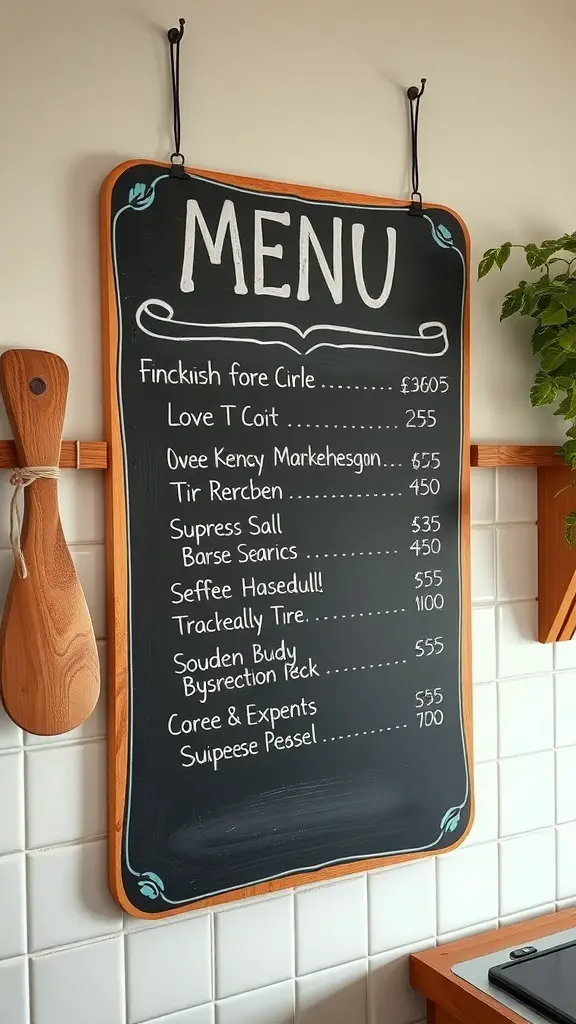 MENU
Finckish fore Cirle ......... £3605
Love T Coit ............... 255
Ovee Kency Markehesgon... £55
Tir Rercben ............... 450
Supress Sall 535
Barse Searics ............ 450
Seffee Hasedull! 555
Trackeally Tire ............ 1100
Souden Budy
Bysrection Peck ............ 555
Coree & Expents 555
Suipeese Pesel ............ 700